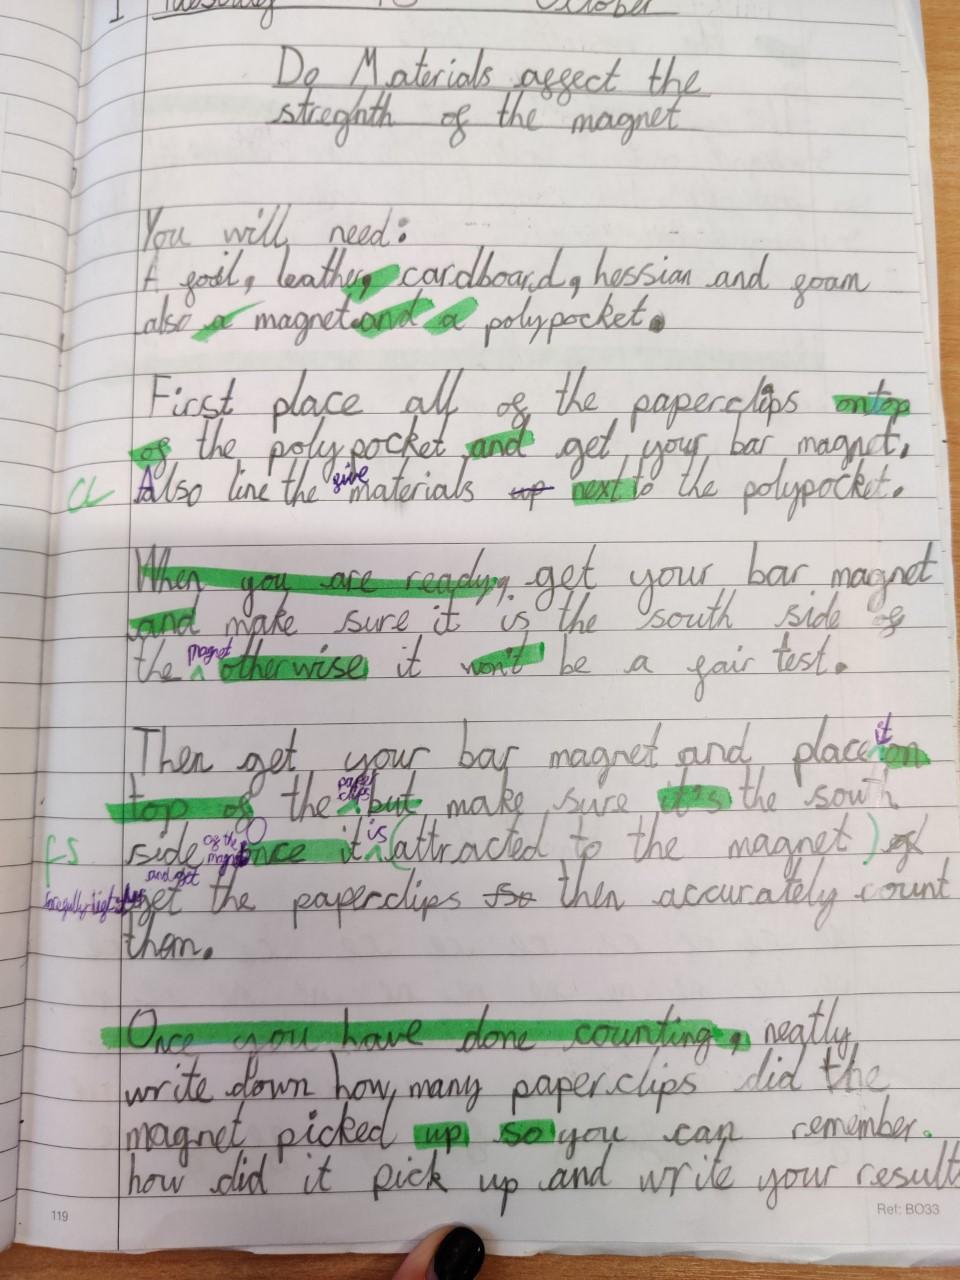 1 Tuesday October
Do Materials affect the
streghth of the magnet
You will need:
A foil, leather, cardboard, hessian and foam
also a magnet and a polypocket.
First place all of the paperclips ontop
of the polypocket and get your bar magnet.
cl Also line the five materials up next to the polypocket.
When you are ready, get your bar magnet
and make sure it is the south side of
the magnet otherwise it won't be a fair test.
Then get your bar magnet and place it on
top of the paper clips but make sure it's the south
fs side of the magnet once it is (attracted to the magnet) of
and get
get the paperclips so then accurately count
them.
Once you have done counting, neatly
write down how many paperclips did the
magnet picked up so you can remember.
how did it pick up and write your result
119
Ref: BO33